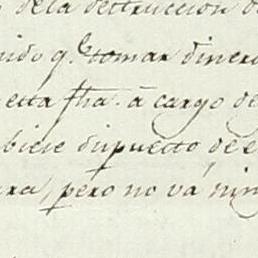 de la destruccion de
nido q.e tomar dinero
esta fha. á cargo de
biese dispuesto de e
ra, pero no vá nin